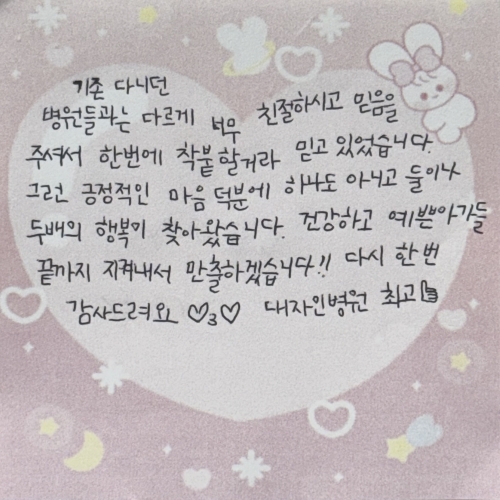 기존 다니던
병원들과는 다르게 너무 친절하시고 믿음을
주셔서 한번에 착붙할거라 믿고 있었습니다.
그런 긍정적인 마음 덕분에 하나도 아니고 둘이나
두배의 행복이 찾아왔습니다. 건강하고 예쁜아가들
끝까지 지켜내서 만출하겠습니다!! 다시 한번
감사드려요 ♡3♡ 대자인병원 최고👍